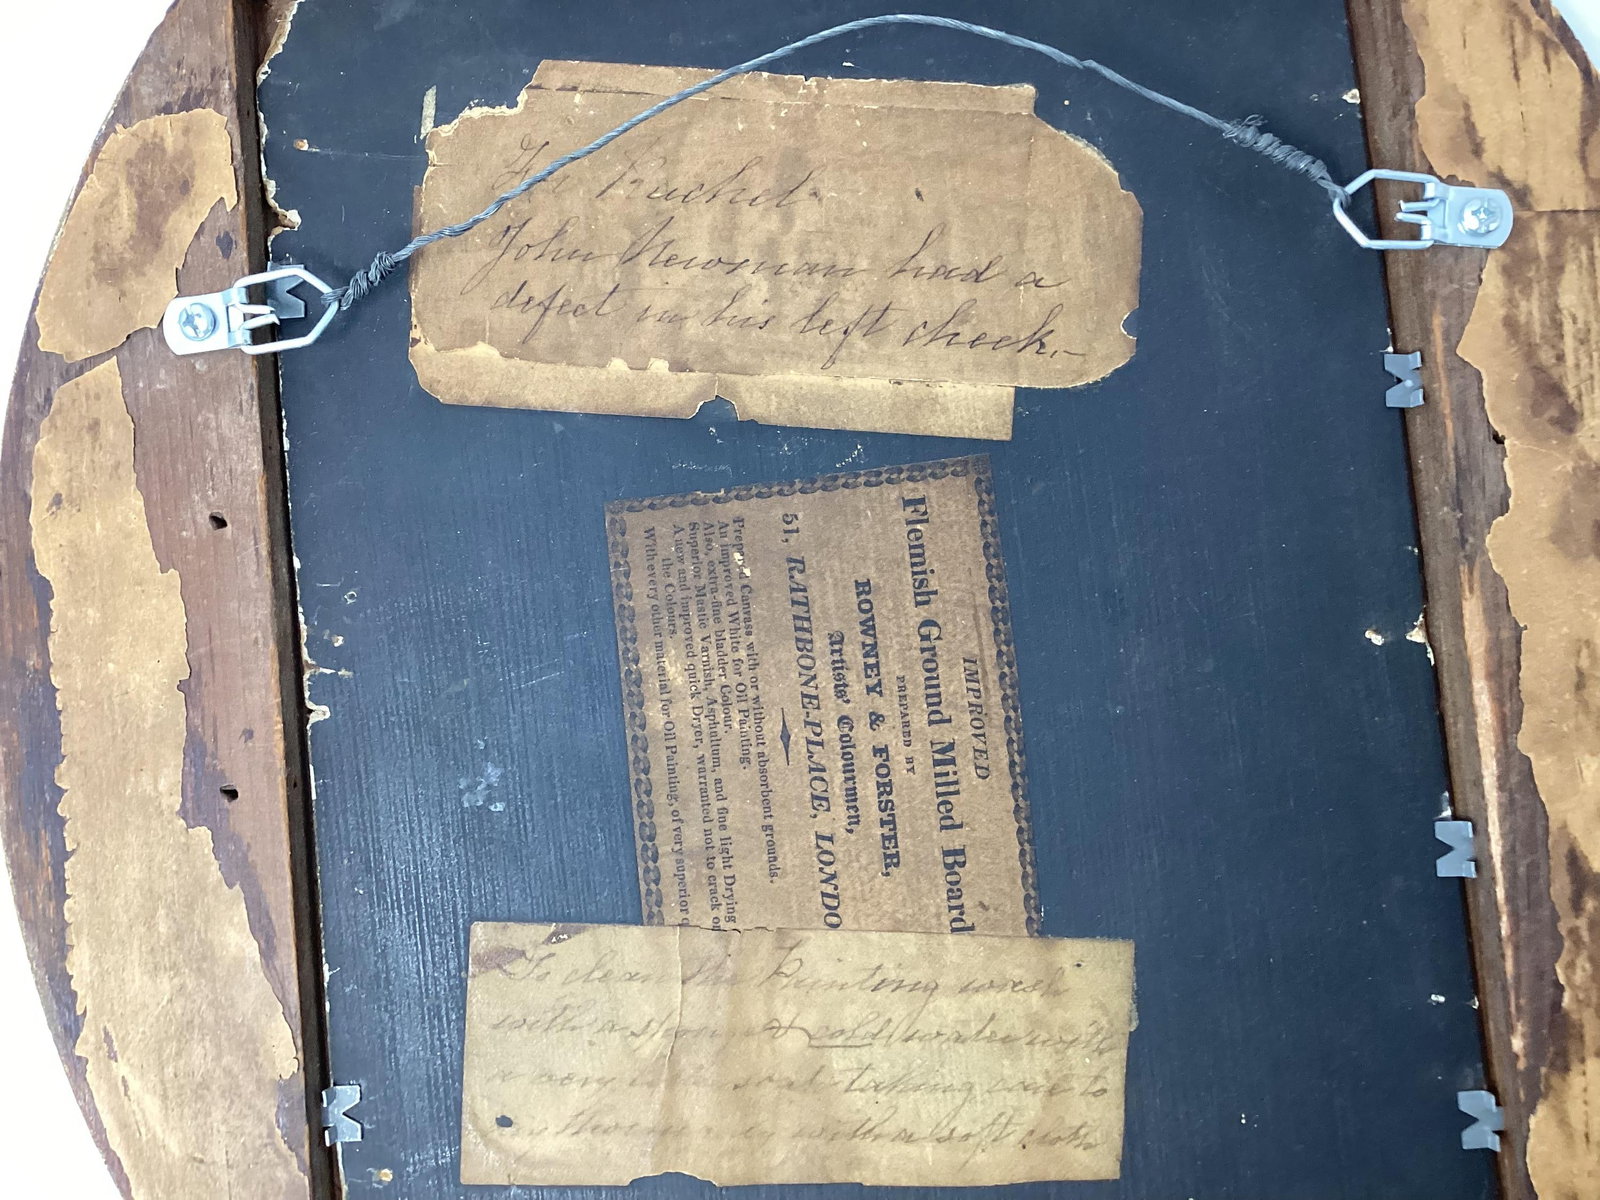 For Rachel.
John Newman had a
defect in his left cheek.—
IMPROVED
Flemish Ground Milled Board
PREPARED BY
ROWNEY & FORSTER,
Artists' Colourmen,
51, RATHBONE-PLACE, LONDO
Prepared Canvass with or without absorbent grounds.
An improved White for Oil Painting.
Also, extra-fine bladder Colour.
Superior Mastic Varnish, Asphaltum, and fine light Drying
A new and improved quick Dryer, warranted not to crack or
the Colours.
With every other material for Oil Painting, of very superior q
To clean the Painting wash
with a & cold water with
a very taking care to
with a soft